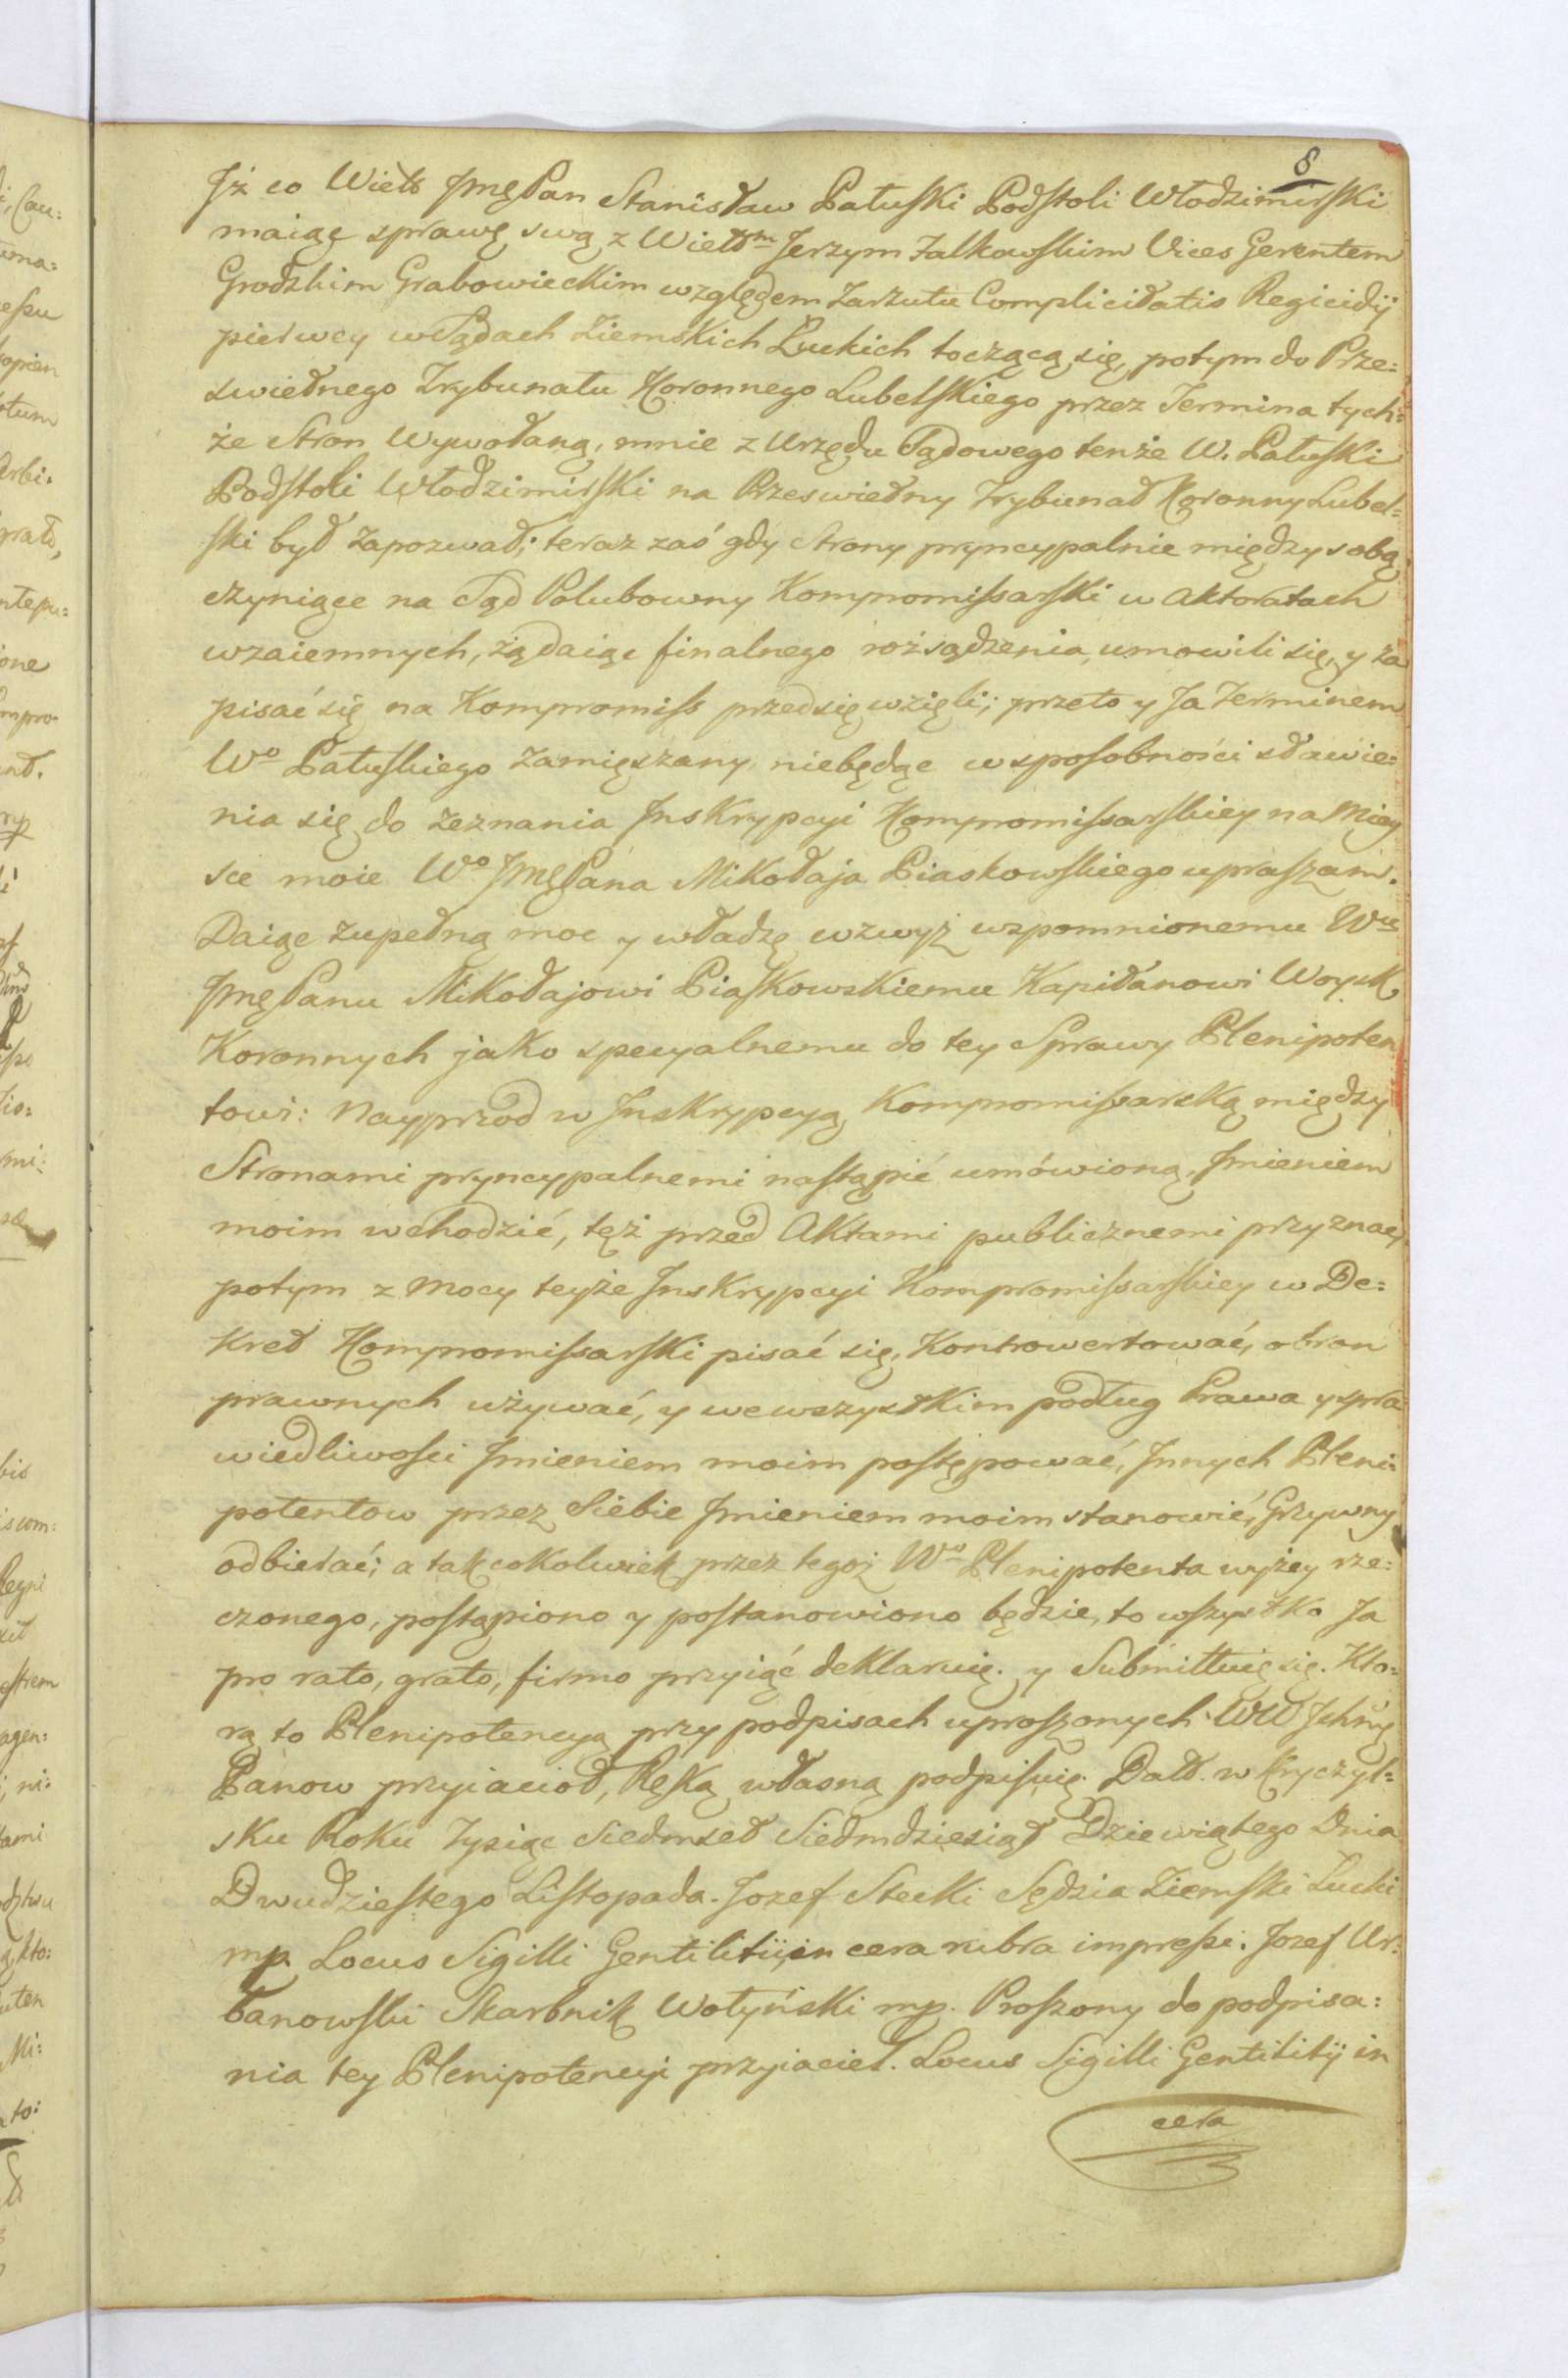 8
Iż co Wielb JmęPan Stanisław Pałuski Podstoli Włodzimirski
maiąc sprawę swą z Wielb^m Jerzym Załkowskim Vices Gerentem
Grodzkim Grabowieckim względem zarzutu Complicitatis Regicidij
pierwey w Sądach Ziemskich Łuckich toczącą się, potym do Prze=
swietnego Trybunału Koronnego Lubelskiego przez Termina tych=
że Stron Wywołaną, mnie z Urzędu Sądowego tenże W. Pałuski
Podstoli Włodzimirski na Przeswietny Trybunał Koronny Lubel=
ski był zapozwał; teraz zaś gdy Strony pryncypalnie między sobą
czyniące na Sąd Polubowny Kompromissarski w Aktoratach
wzaiemnych, żądaiąc finalnego rozsądzenia, umowili się, y za
pisać się na Kompromiss przedsięwzięli; przeto y Ja Terminem
W^o Pałuskiego zamięszany, niebędąc w sposobności stawie=
nia się do zeznania Inskrypcyi Kompromissarskiey na Miey
sce moie W^o JmęPana Mikołaja Piaskowskiego upraszam.
Daiąc zupełną moc y władzę wzwyż wspomnionemu W^u
JmęPanu Mikołajowi Piaskowskiemu Kapitanowi Woysk
Koronnych jako specyalnemu do tey Sprawy Plenipoten
towi: Nayprzod w Inskrypcyą Kompromissarską między
Stronami pryncypalnemi nastąpić umówioną, Imieniem
moim wchodzić, tęż przed Aktami publicznemi przyznać,
potym z mocy teyże Inskrypcyi Kompromissarskiey w De=
kret Kompromissarski pisać się, Kontrowertować, obron
prawnych używać, y wewszystkim podług Prawa y spra
wiedliwości Imieniem moim postępować, Innych Pleni=
potentow przez Siebie Imieniem moim stanowić, Grzywny
odbierać; a tak cokolwiek przez tegoż W^o Plenipotenta wyżey rze=
czonego, postąpiono y postanowiono będzie, to wszystko Ja
pro rato, grato, firmo przyiąć deklaruię. y Submittuię się. Kto=
rą to Plenipotencyą przy podpisach uproszonych WW Ichmę
Panow przyiacioł, Ręką własną podpisuię. Datt. w Kryczyl=
sku Roku Tysiąc Siedmset Siedmdziesiąt Dziewiątego Dnia
Dwudziestego Listopada. Jozef Stecki Sędzia Ziemski Łucki
mp. Locus Sigilli Gentilitij in cera rubra impressi. Jozef Ur=
banowski Skarbnik Wołyński mp. Proszony do podpisa=
nia tey Plenipotencyi przyiaciel. Locus Sigilli Gentilitij in
cera